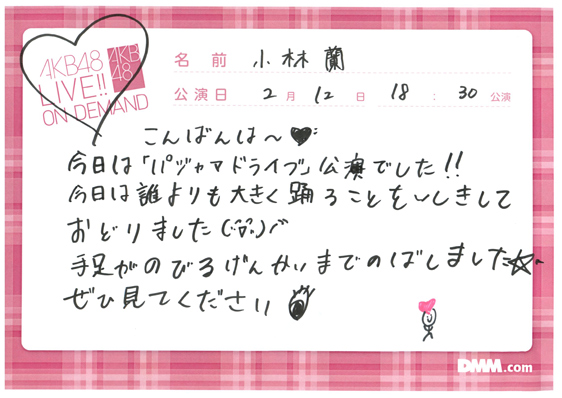 AKB48
LIVE!!
ON DEMAND
AKB
48
名前 小林蘭
公演日 2月12日 18:30公演
こんばんは〜
今日は「パジャマドライブ」公演でした!!
今日は誰よりも大きく踊ることをいしきして
おどりました
手足がのびるげんかいまでのばしました☆
ぜひ見てください
DMM.com